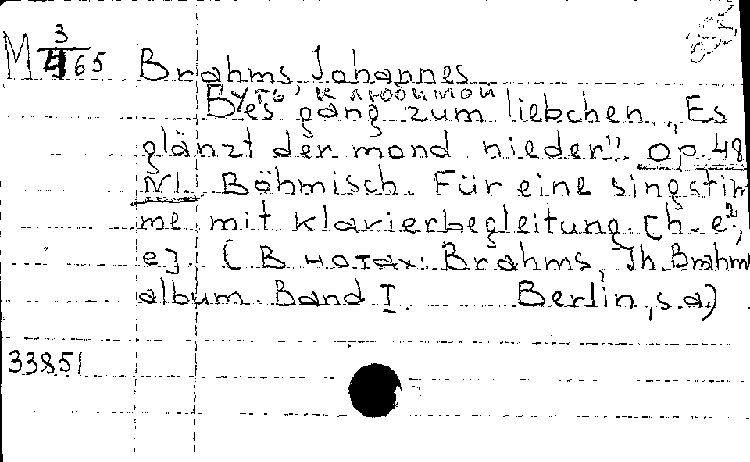 M 3/4 65 Brahms, Johannes
Путь к любимой
Der gang zum liebchen „Es
glänzt der mond nieder". Op. 48
N1. Böhmisch. Für eine singstim
me mit klavierbegleitung [h-e²,
e]. [В нотах: Brahms, Jh. Brahm
album. Band I. Berlin, s.a)
33851